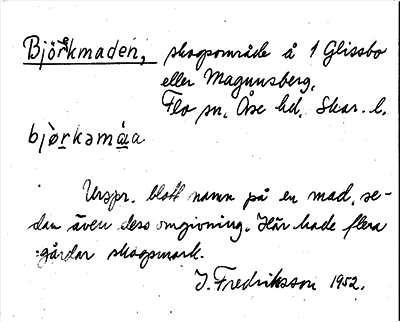 Björkmaden, skogsområde å 1 Glissbo
eller Magnusberg,
Flo sn, Åse hd, Skar. l.
bjò̱rkamá̱a
Urspr. blott namn på en mad, se-
dan även dess omgivning. Här hade flera
gårdar skogsmark.
I. Fredriksson 1952.